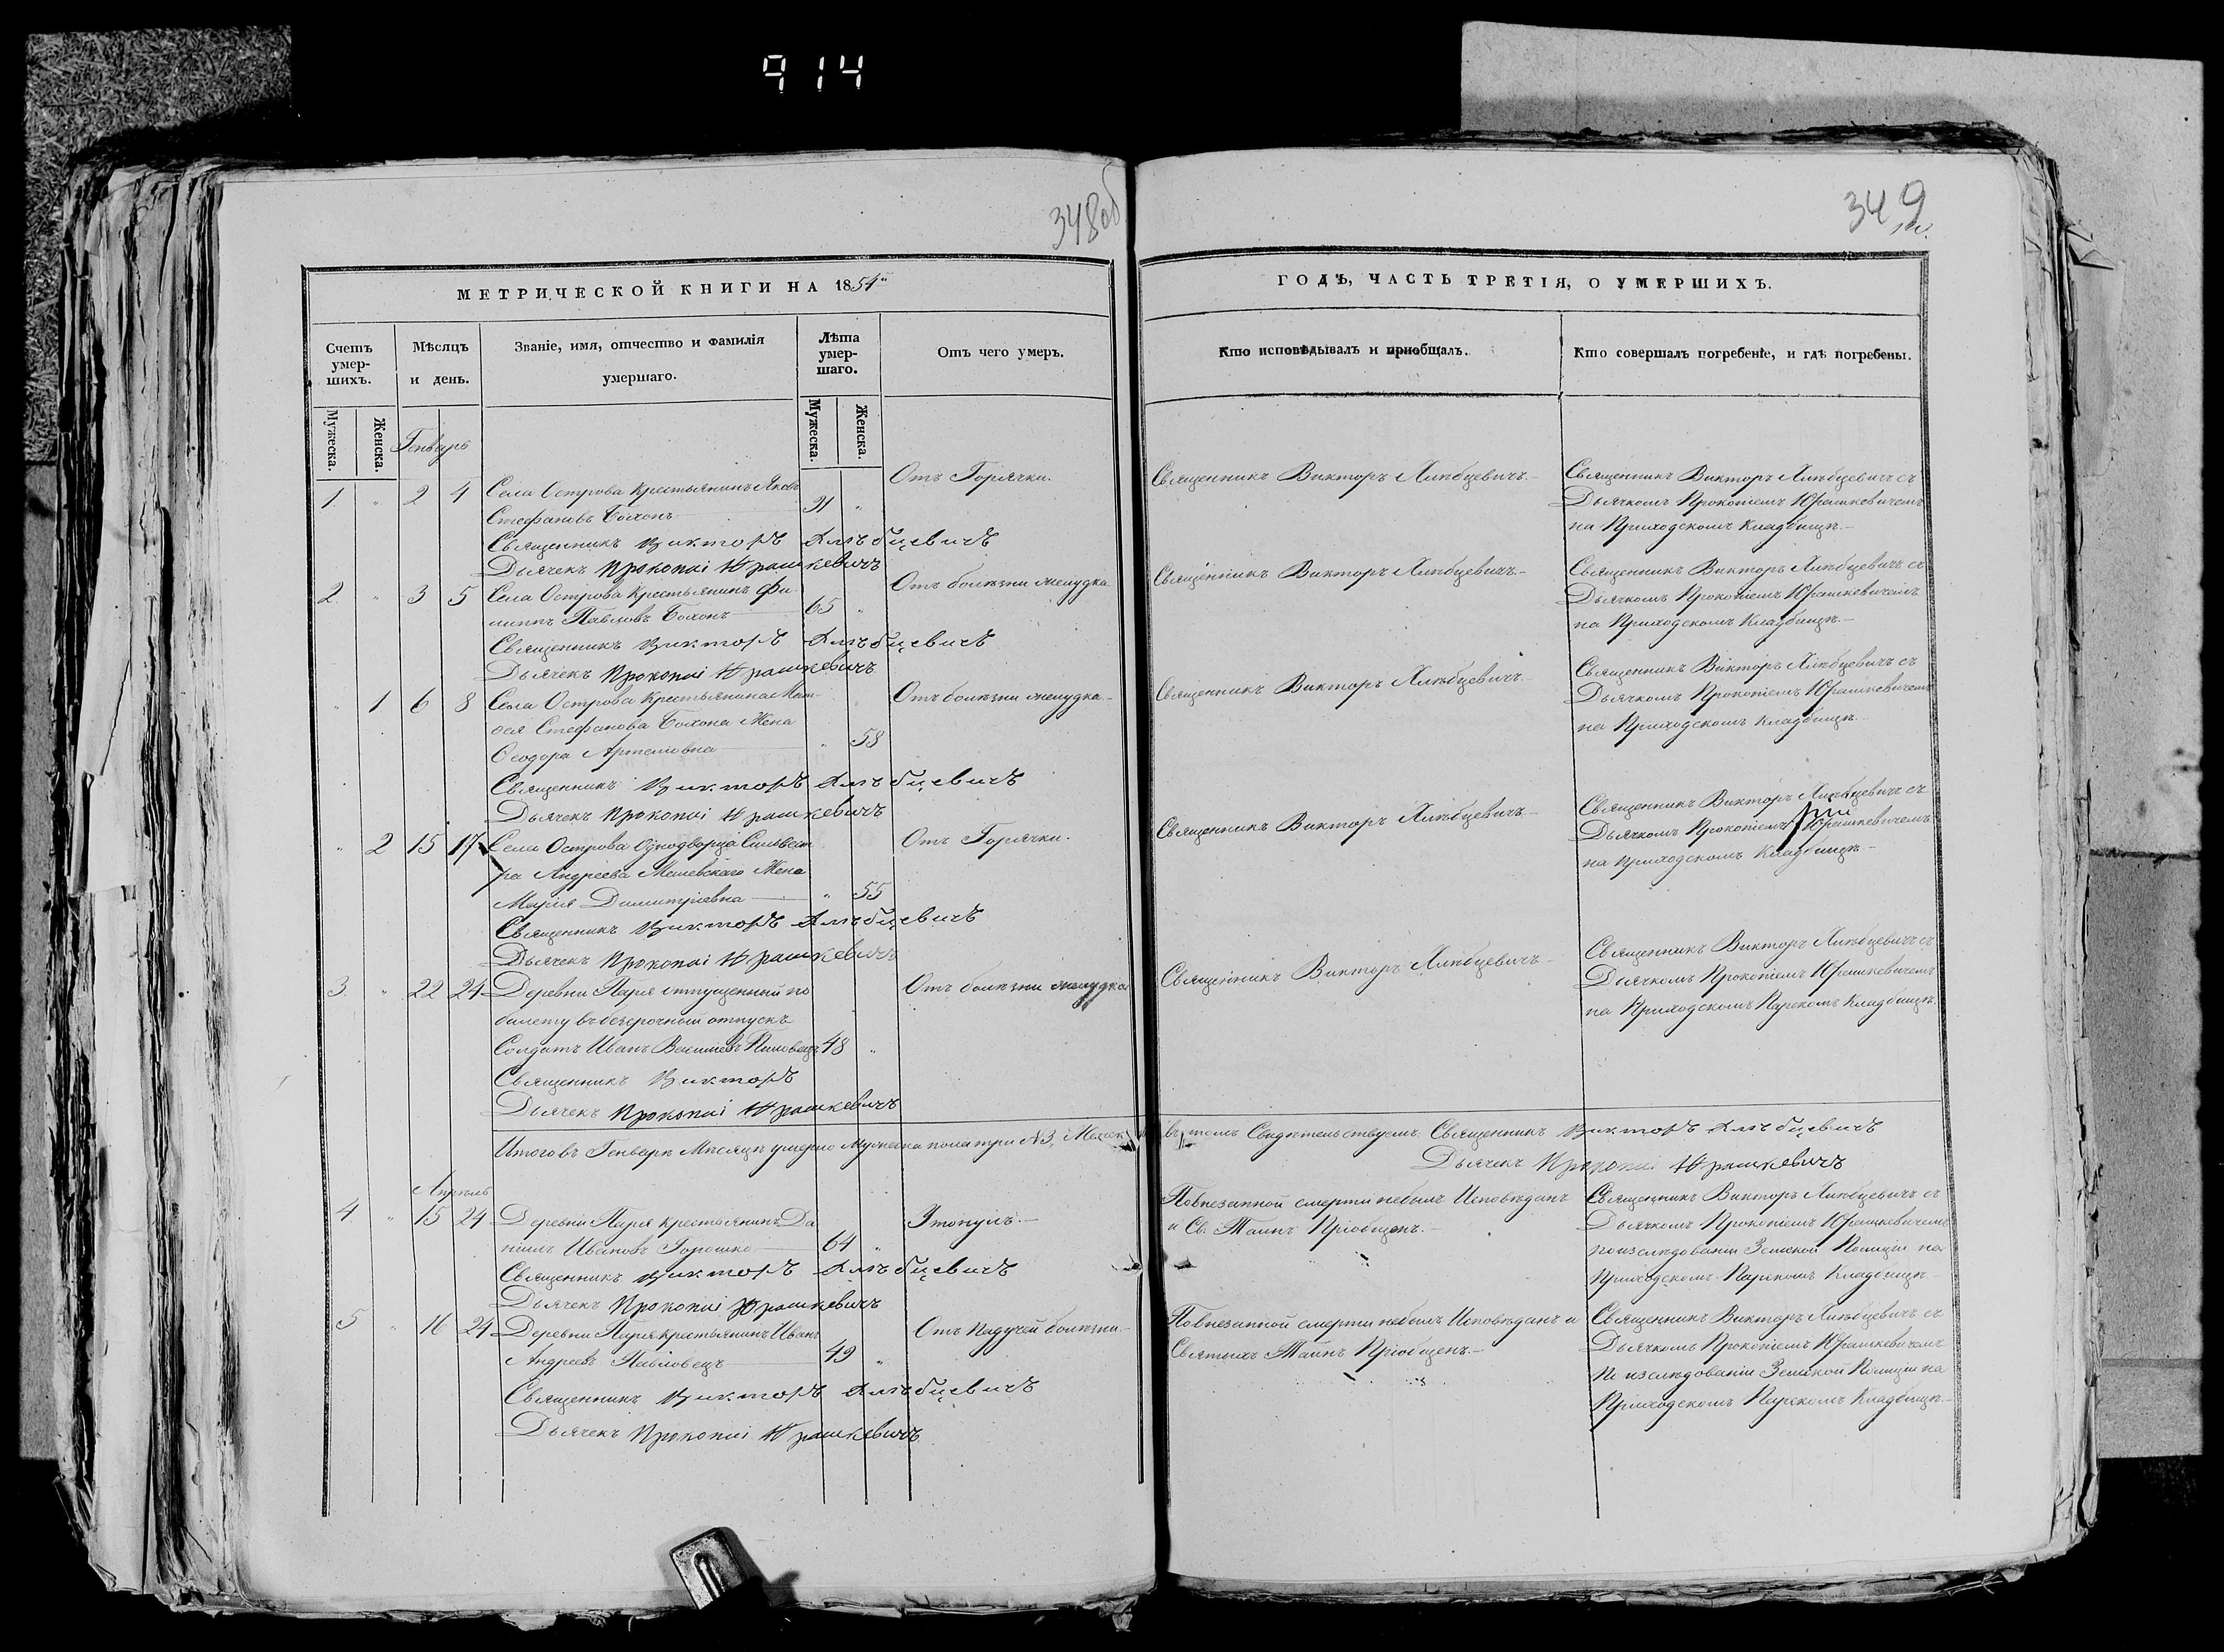 914
348об
349
МЕТРИЧЕСКОЙ КНИГИ НА 1854
ГОДЪ, ЧАСТЬ ТРЕТІЯ, О УМЕРШИХЪ.
Счетъ умер-шихъ.
Мѣсяцъ и день.
Званіе, имя, отчество и фамилія умершаго.
Лѣта умер-шаго.
Отъ чего умеръ.
Кто исповѣдывалъ и приобщалъ.
Кто совершалъ погребеніе, и гдѣ погребены.
Мужеска.
Женска.
Мужеска.
Женска.
Генварь
1 " 2 4 Села Острова Крестьянинъ Яковъ
Стефановъ Бохонъ " Отъ Горячки.
Священникъ Викторъ Хлѣбцевичъ
Дьячекъ Прокопій Юрашкевичъ
Священникъ Викторъ Хлѣбцевичъ.
Священникъ Викторъ Хлѣбцевичъ съ
Дьячкомъ Прокопіемъ Юрашкевичемъ
на Приходскомъ Кладбищѣ.
2 " 3 5 Села Острова Крестьянинъ Фи
липпъ Павловъ Бохонъ 65 " Отъ болѣзни желудка
Священникъ Викторъ Хлѣбцевичъ
Дьячекъ Прокопій Юрашкевичъ
Священникъ Викторъ Хлѣбцевичъ.
Священникъ Викторъ Хлѣбцевичъ съ
Дьячкомъ Прокопіемъ Юрашкевичемъ
на Приходскомъ Кладбищѣ.
" 1 6 8 Села Острова Крестьянина
Стефанова Бохона Жена
Ѳеодора Артемовна " 58 Отъ болѣзни желудка
Священникъ Викторъ Хлѣбцевичъ
Дьячекъ Прокопій Юрашкевичъ
Священникъ Викторъ Хлѣбцевичъ.
Священникъ Викторъ Хлѣбцевичъ съ
Дьячкомъ Прокопіемъ Юрашкевичемъ
на Приходскомъ Кладбищѣ.
" 2 15 17 Села Острова Однодворца Сильвест
ра Андреева Жена
Марія Димитріевна " 55 Отъ Горячки.
Священникъ Викторъ Хлѣбцевичъ
Дьячекъ Прокопій Юрашкевичъ
Священникъ Викторъ Хлѣбцевичъ.
Священникъ Викторъ Хлѣбцевичъ съ
Дьячкомъ Прокопіемъ Юрашкевичемъ
на Приходскомъ Кладбищѣ.
3 " 22 24 Деревни Паря отпущенный по
билету въ безсрочный отпускъ
Солдатъ Иванъ 48 " Отъ болѣзни желудка
Священникъ Викторъ
Дьячекъ Прокопій Юрашкевичъ
Священникъ Викторъ Хлѣбцевичъ
Священникъ Викторъ Хлѣбцевичъ съ
Дьячкомъ Прокопіемъ Юрашкевичемъ
на Приходскомъ Парскомъ Кладбищѣ.
Итого въ Генварѣ Мѣсяцѣ умерло Мужеска пола три №3,
въ томъ Свидѣтельствуемъ: Священникъ Викторъ Хлѣбцевичъ
Дьячекъ Прокопій Юрашкевичъ
Апрѣль
4 " 15 24 Деревни Паря Крестьянинъ Да
нилъ Ивановъ Горошко 64 " Утонулъ.
Священникъ Викторъ Хлѣбцевичъ
Дьячекъ Прокопій Юрашкевичъ
По внезапной смерти небылъ Исповѣданъ
и Св. Таинъ Пріобщенъ.
Священникъ Викторъ Хлѣбцевичъ съ
Дьячкомъ Прокопіемъ Юрашкевичемъ
по изслѣдованіи Земской Полиціи на
Приходскомъ Парскомъ Кладбищѣ
5 " 16 24 Деревни Паря Крестьянинъ Иванъ
Андреевъ Павловецъ 49 " Отъ Падучей болѣзни.
Священникъ Викторъ Хлѣбцевичъ
Дьячекъ Прокопій Юрашкевичъ
По внезапной смерти небылъ Исповѣданъ и
Святыхъ Таинъ Пріобщенъ.
Священникъ Викторъ Хлѣбцевичъ съ
Дьячкомъ Прокопіемъ Юрашкевичемъ
По изслѣдованіи Земской Полиціи на
Приходскомъ Парскомъ Кладбищѣ.